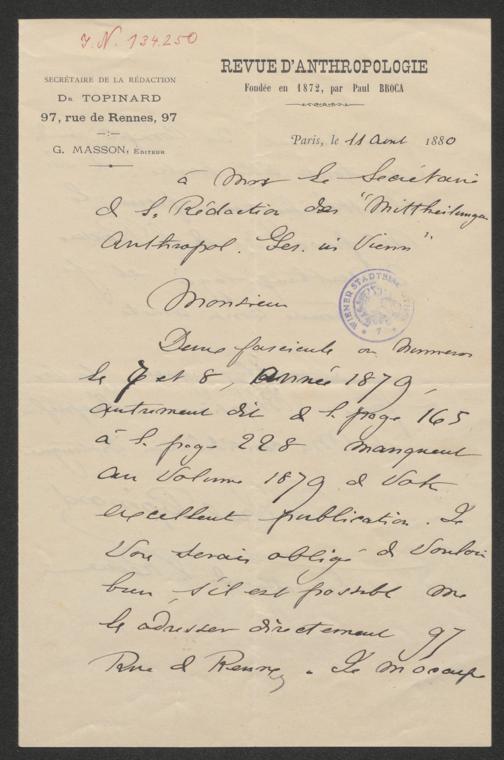 J. N. 134.250
SECRÉTAIRE DE LA RÉDACTION
Dr TOPINARD
97, rue de Rennes, 97
G. MASSON, ÉDITEUR
REVUE D'ANTHROPOLOGIE
Fondée en 1872, par Paul BROCA
Paris, le 11 Avril 1880
à Mr le Secrétaire
de la Rédaction des "Mittheilungen
Anthropol. Ges. in Wienn"
WIENER STADTBIBLIOTHEK
Monsieur
Deux fascicules ou Numeros
le 7 et 8, Année 1879,
autrement dit de la page 165
à la page 228 manquent
au Volume 1879 de Votre
excellent publication. Je
Vous serais obligé de Vouloir
bien, s'il est possible me
les adresser directement 97
Rue de Rennes. Je m'occupe